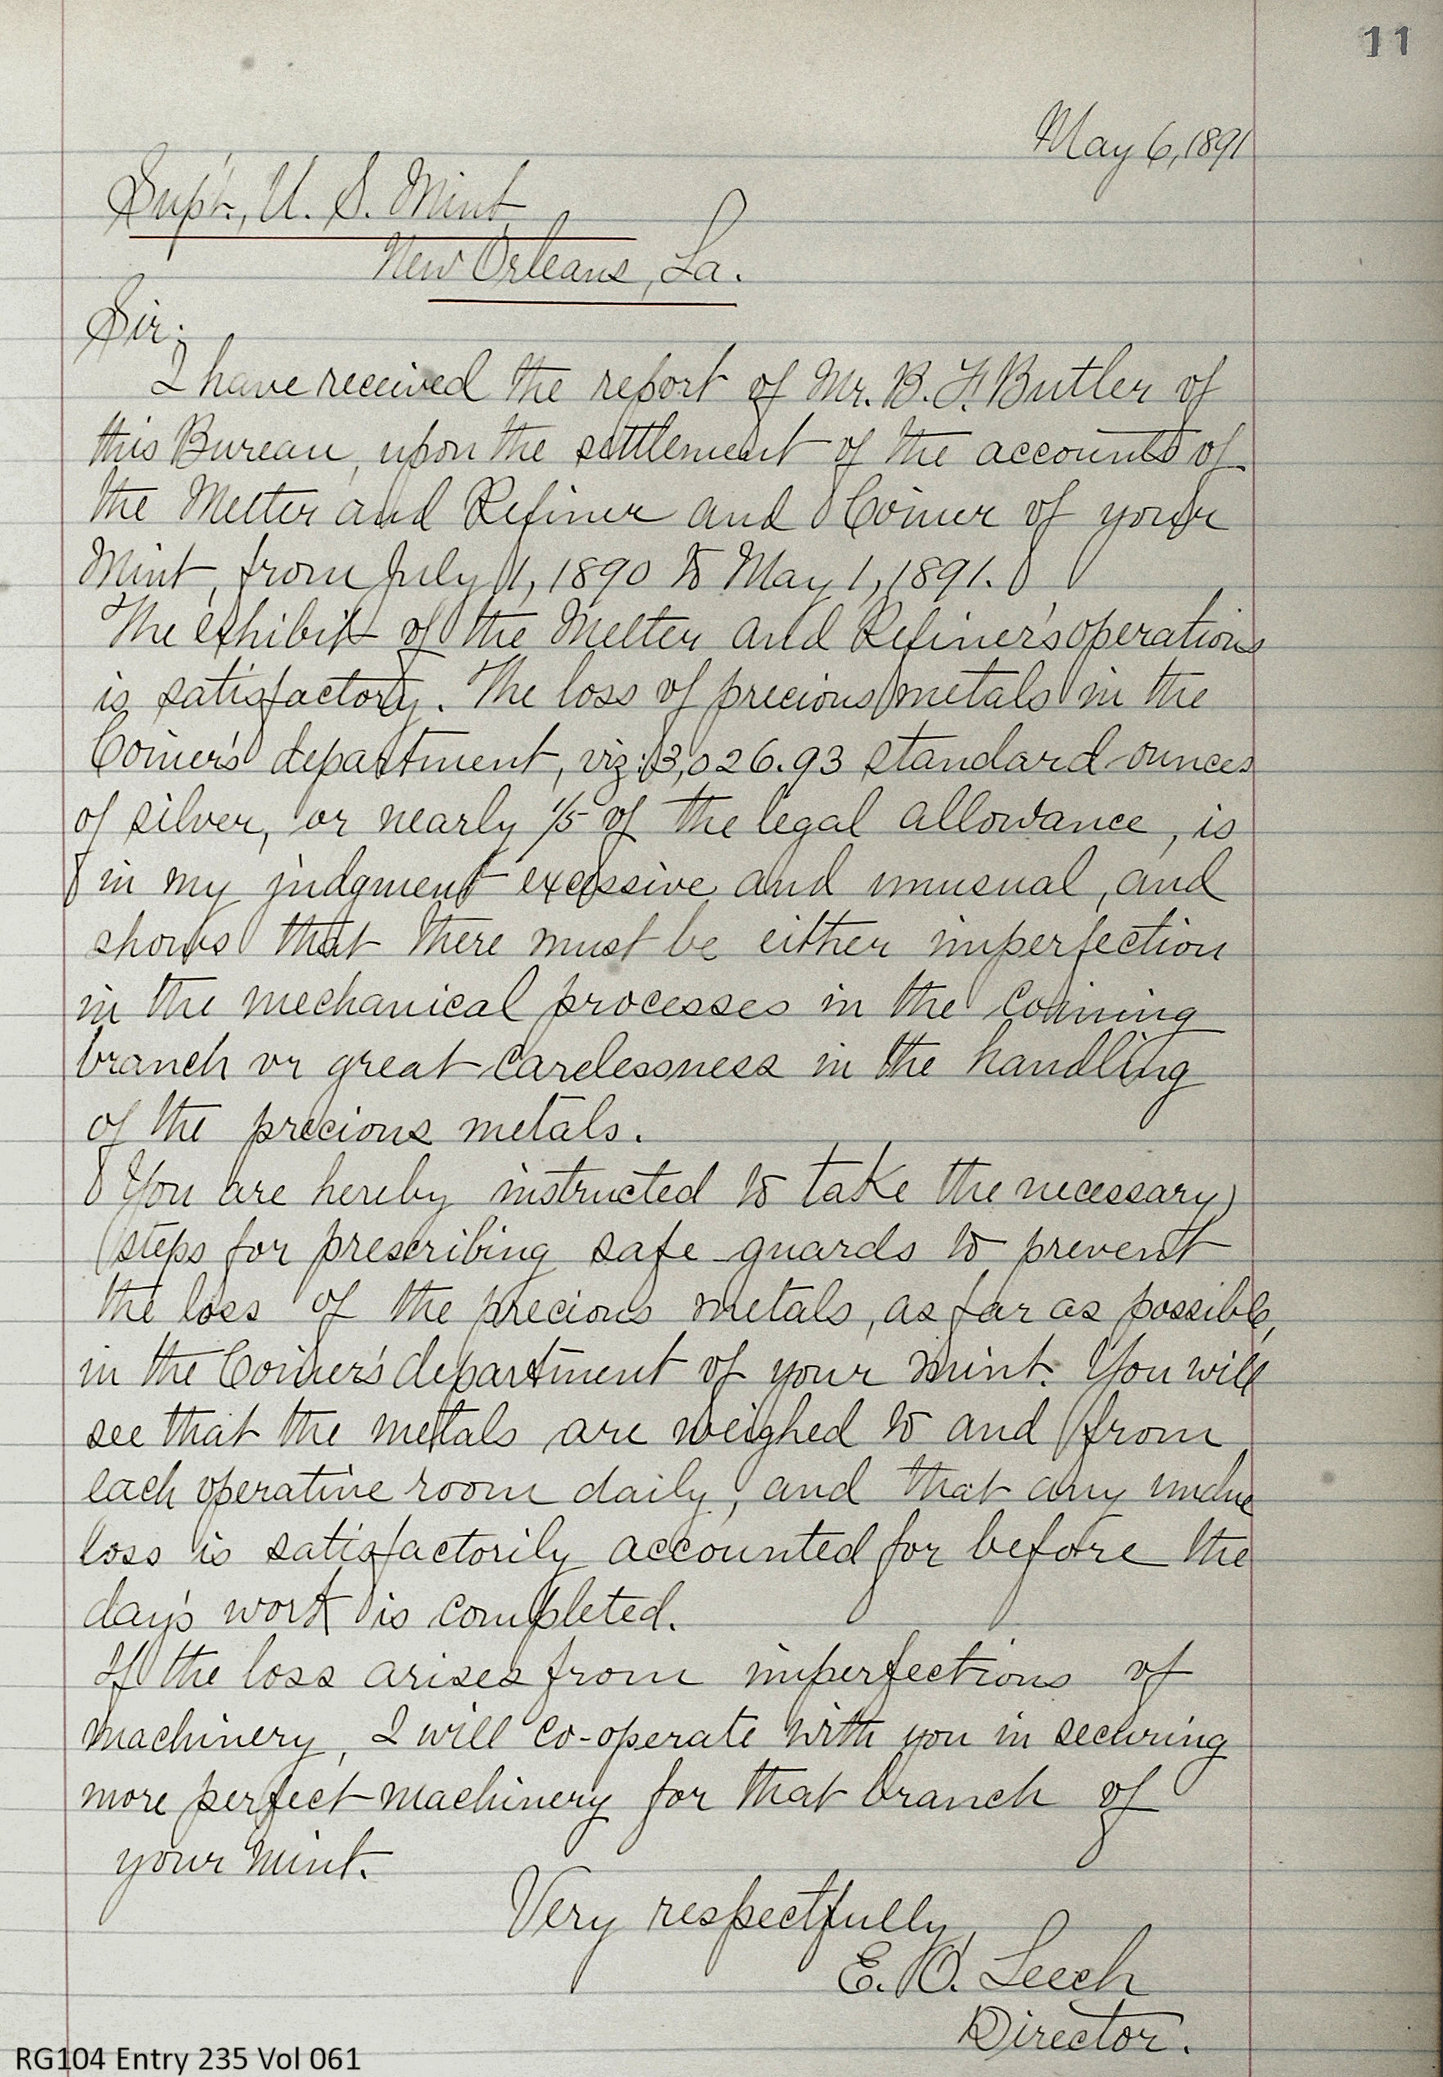 11
May 6, 1891
Sup't., U. S. Mint,
New Orleans, La.
Sir:
I have received the report of Mr. B. F. Butler of
this Bureau, upon the settlement of the accounts of
the Melter and Refiner and Coiner of your
Mint, from July 1, 1890 to May 1, 1891.
The exhibit of the Melter and Refiner's operations
is satisfactory. The loss of precious metals in the
Coiner's department, viz: 3,026.93 standard ounces
of silver, or nearly 1/5 of the legal allowance, is
in my judgment excessive and unusual, and
shows that there must be either imperfection
in the mechanical processes in the coining
branch or great carelessness in the handling
of the precious metals.
You are hereby instructed to take the necessary
steps for prescribing safe-guards to prevent
the loss of the precious metals, as far as possible,
in the Coiner's department of your mint. You will
see that the metals are weighed to and from
each operative room daily, and that any undue
loss is satisfactorily accounted for before the
day's work is completed.
If the loss arises from imperfections of
machinery, I will co-operate with you in securing
more perfect machinery for that branch of
your mint.
Very respectfully,
E. O. Leech
Director.
RG104 Entry 235 Vol 061